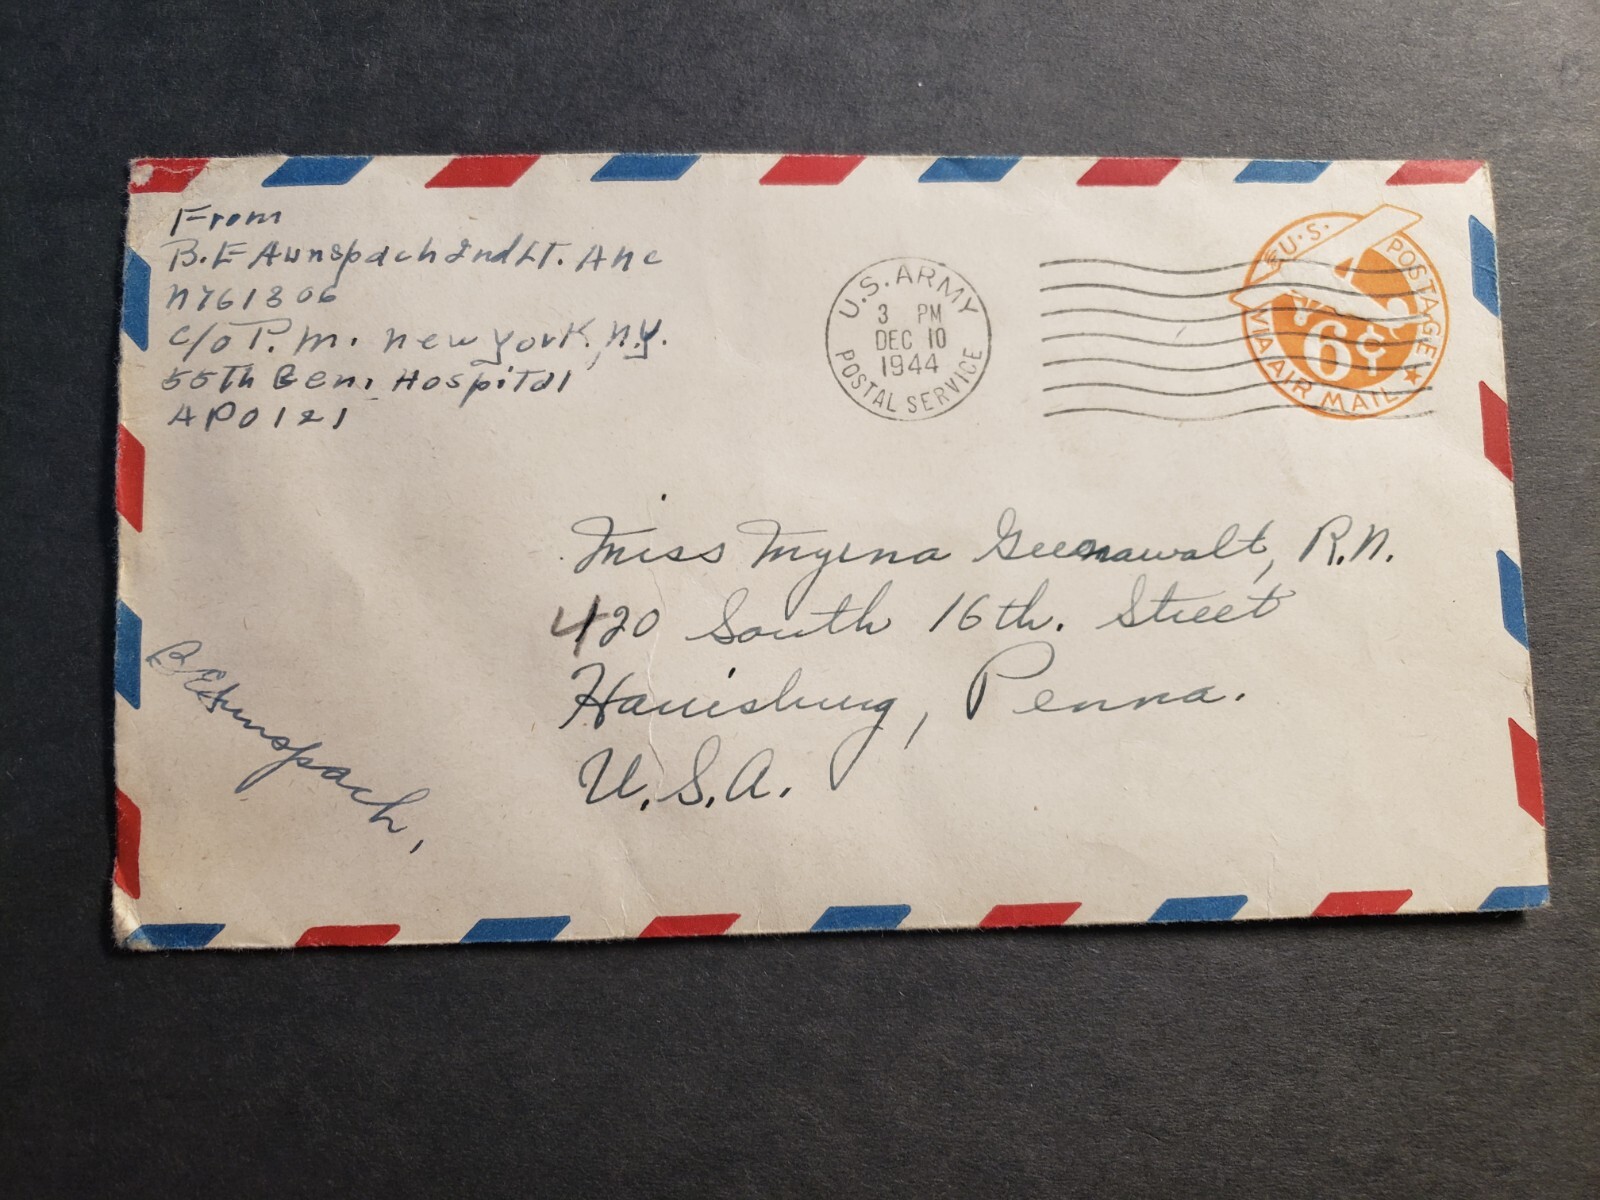 From
B.E Aunspach 2nd Lt. Anc
N761306
c/o P.M. New York, N.Y.
55th Gen. Hospital
APO 121
U.S. ARMY
3 PM
DEC 10
1944
POSTAL SERVICE
U.S. POSTAGE
6¢
VIA AIR MAIL
Miss Myrna Greenawalt, R.N.
420 South 16th. Street
Harrisburg, Penna.
U.S.A.
B E Aunspach,